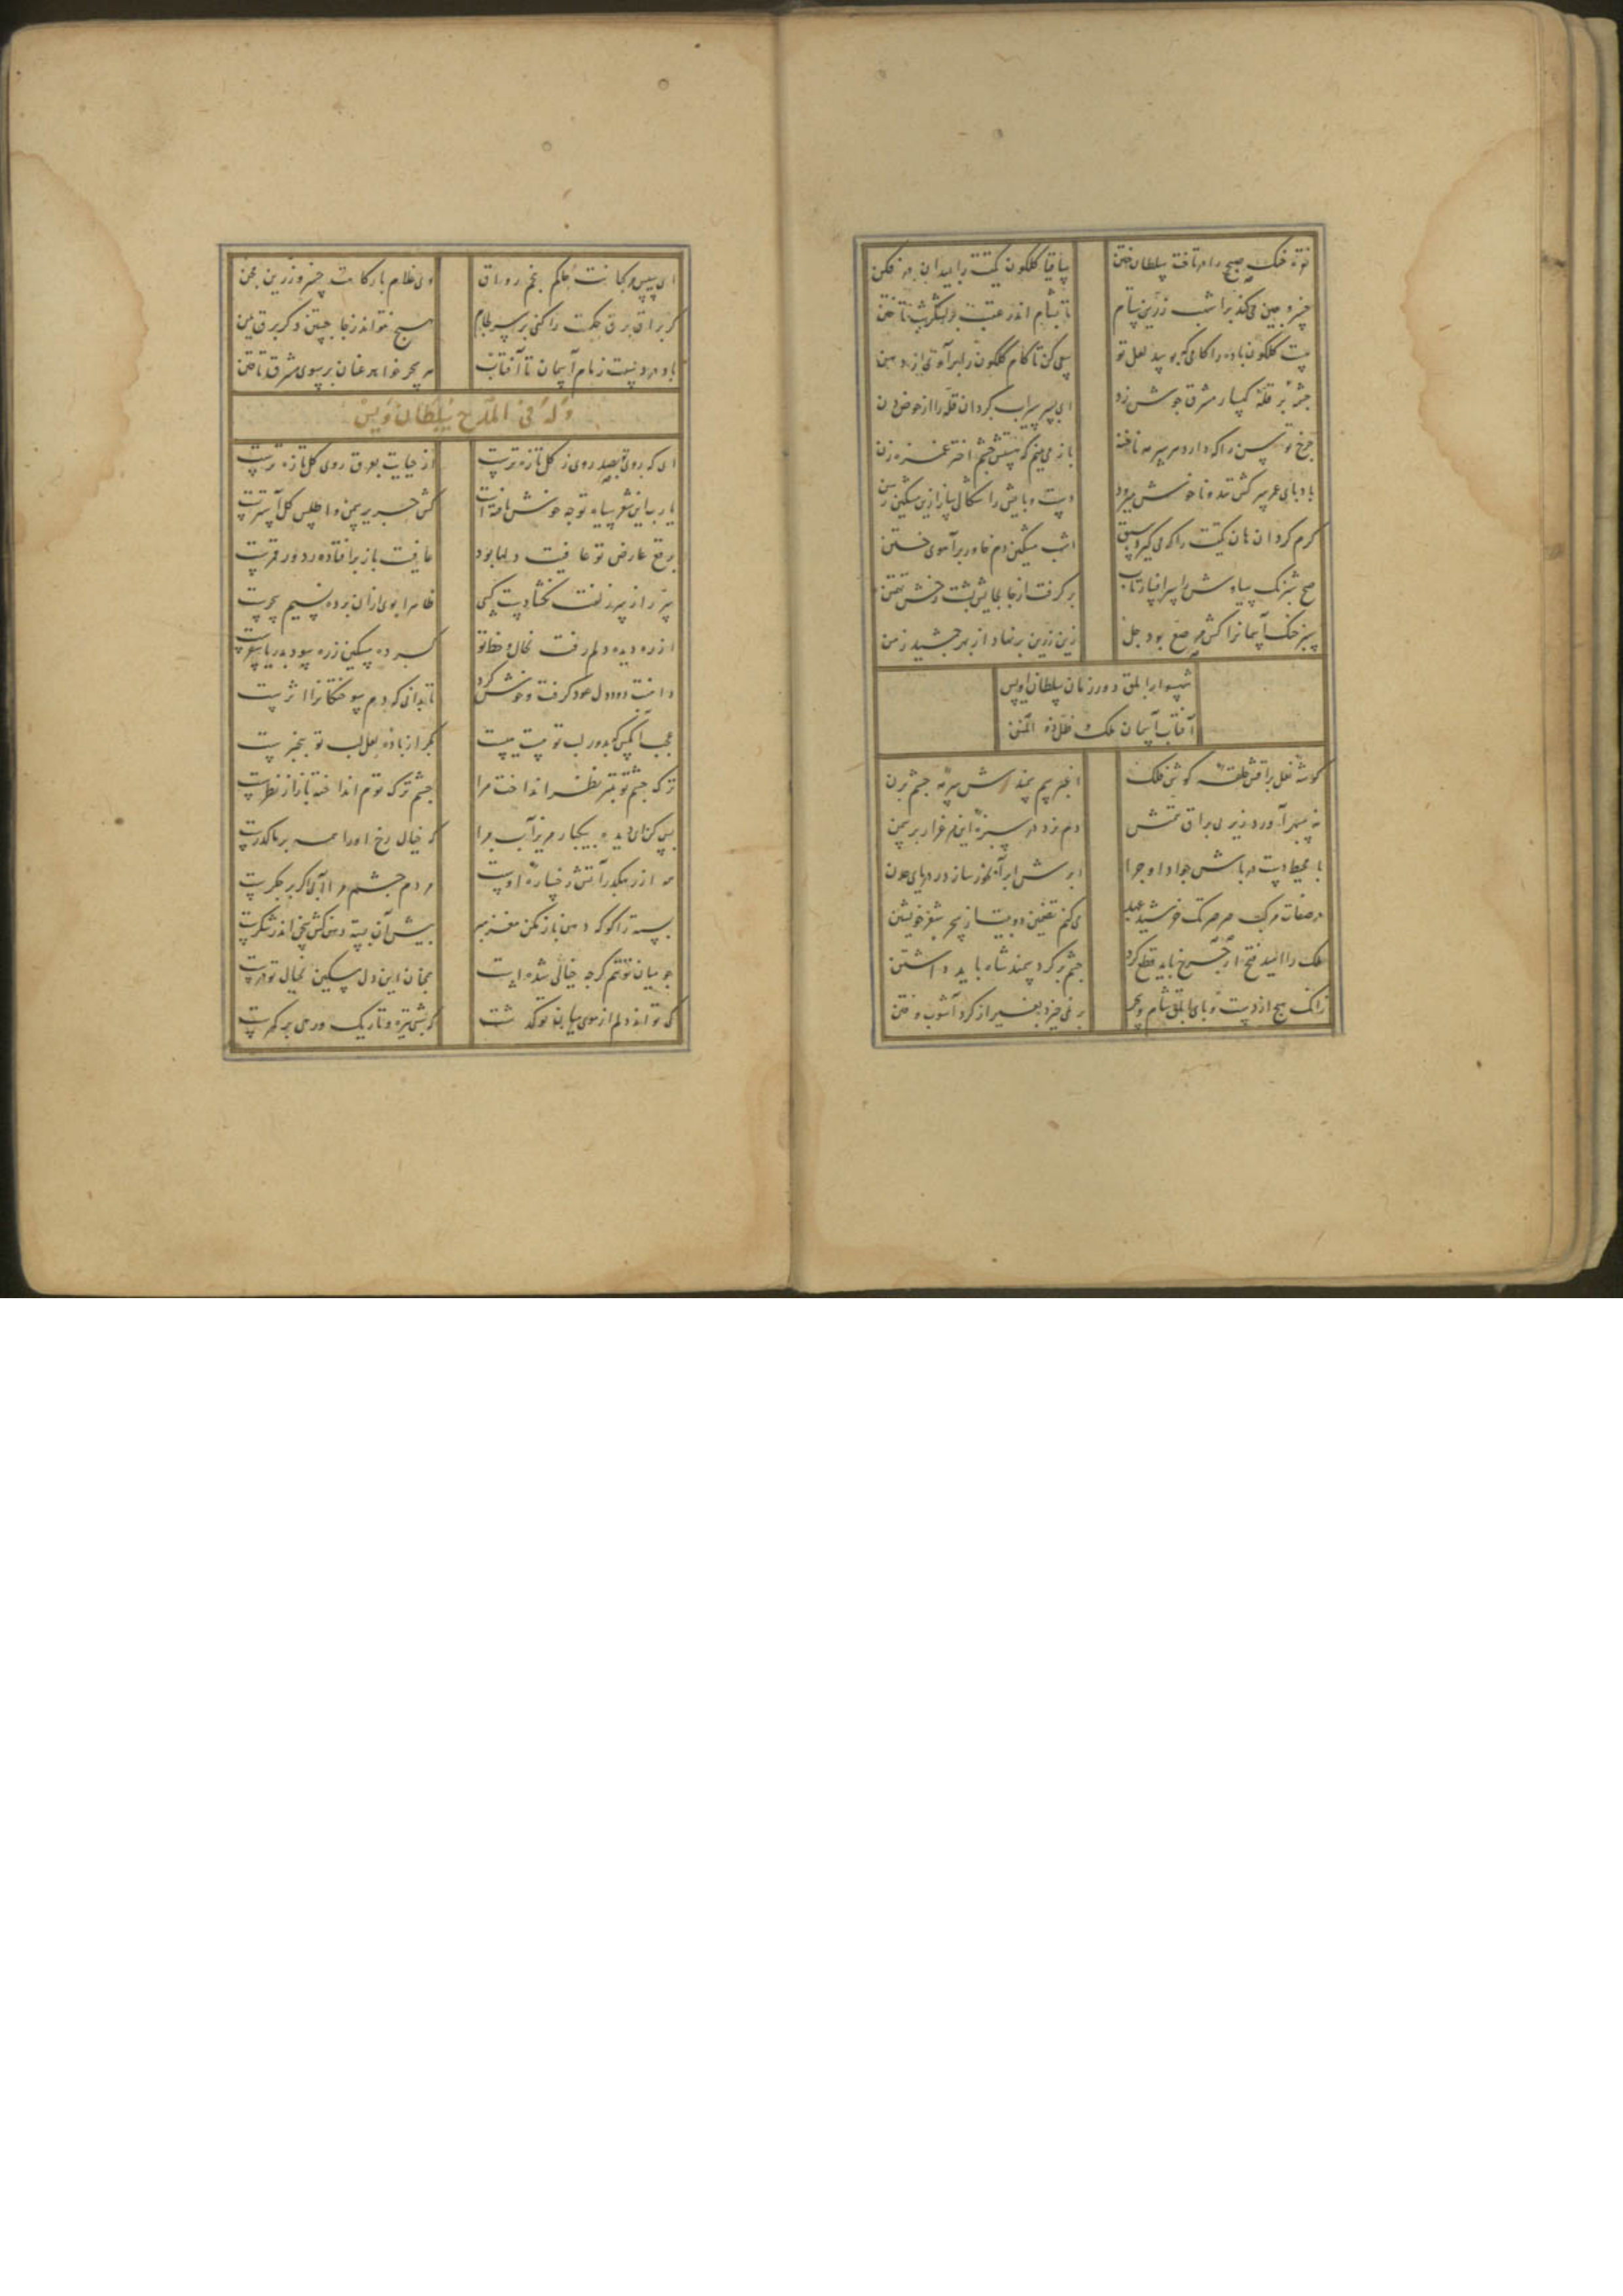 نوبه خنک صبح را در تافت سلطان ختن
ساقیا گلگون کمیتت را بمیدان در فکن
خسرو چین می کند بر اشهب زرین ستام
تا بشام اندر عقب بر لشکر شب تاختن
پست گلگون باده را کامی که بوسد لعل تو
سعی کن تا کام گلگون را برآری از دهن
چشمه بر قله کهسار مشرق جوش زد
ای پسر سیراب گردان قله را از حوض دن
چرخ توسن را که دارد بر سر مه ناخنه
باز می بینم که هستش چشم اختر غمزه زن
باد پای عمر سرکش تند و ناخوش میرود
دست و پایش را شکالی ساز ازین مشکین رسن
گرم گردان هان کمیت را که می گیرد سبق
اشهب مشکین دم خاور بر آهوی ختن
صبح شبرنگ سیاوش را سر افسار تاب
بر گرفت از جا بجایش بست رخش تهمتن
سبز خنک آسمانرا کش مرصع بود جل
زین زرین بر نهاد از بهر جمشید زمن
شهسوار ابلق دور زمان سلطان اویس
آفتاب آسمان ملک ظل ذو المنن
گوشه نعل براقش حلقه گوش فلک
خاک سم سمندش سرمه چشم پرن
با محیط دست در پاش جواد او چرا
ابرش ابر آبخور سازد در دریای عدن
در صفات مرکب صرصر تک خورشید عید
می کنم تضمین دو بیت از بحر شعر خویشتن
ملک را امید فتح از چرخ باید قطع کرد
چشم بر گرد سمند شاه باید داشتن
زانک هیچ از دست و پای ابلق شام و سحر
بر نمی خیزد بغیر از گرد آشوب و فتن
ای سپس و کبابت محکم نجم رواق
وی غلام بارگاهت خسرو زرین مجن
گر براق برق جکمت را کنی بر سر لجام
هیچ نتواند زجا جستن دگر برق یمن
باد در دستت زمام آسمان تا آفتاب
هر سحر خواهد عنان بر سوی مشرق تافتن
وله فی المدح سلطان اویس
ای که روی تو بصد روی ز گل تازه ترست
از حیایت بعرق روی گل تازه ترست
یا رب این شعر سیاه تو چه خوش بافته است
کش حریر سمن و اطلس گل آسترست
برقع عارض تو عافیت دلها بود
عافیت باز برافتاده ز دور قمرست
سر راز سر زلفت نگشادست کسی
ظاهرا بوی ازان برده نسیم سحرست
از ره دیده دلم رفت بخال و خط تو
کرده مسکین ز ره سود بدریا سفرست
دامنت دود دل عود گرفت و خوش کرد
تا بدانی که دم سوختگانرا اثرست
عجب آنکس که بدور لب تو مست نیست
مگر از باده لعل لب تو بیخبرست
ترک چشم تو بتیر نظر انداخت مرا
چشم ترک تو مم انداخته باز از نظرست
بس کن ای دیده و یکبار مریز آب مرا
که خیال رخ او را همه بر ما گذرست
هر از رهگذر آتش رخساره اوست
مردم چشم مرا آبی اگر بر جگرست
پسته را گو که دهن باز نکن مغز مبر
پیش آن پسته دهن کش سخن اندر شکرست
جو میان تو تنم گرچه خیالی شده است
همچنان این دل مسکین بخیال تو درست
کی تواند دلم از موی میان تو گذشت
که شبی تیره و تاریک و رهی بر کمرست